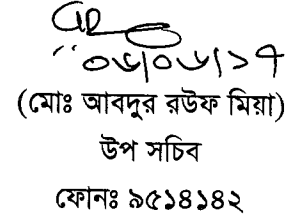 ০৮/০৮/১৭
(মোঃ আবদুর রউফ মিয়া)
উপ সচিব
ফোনঃ ৯৫১৪১৪২